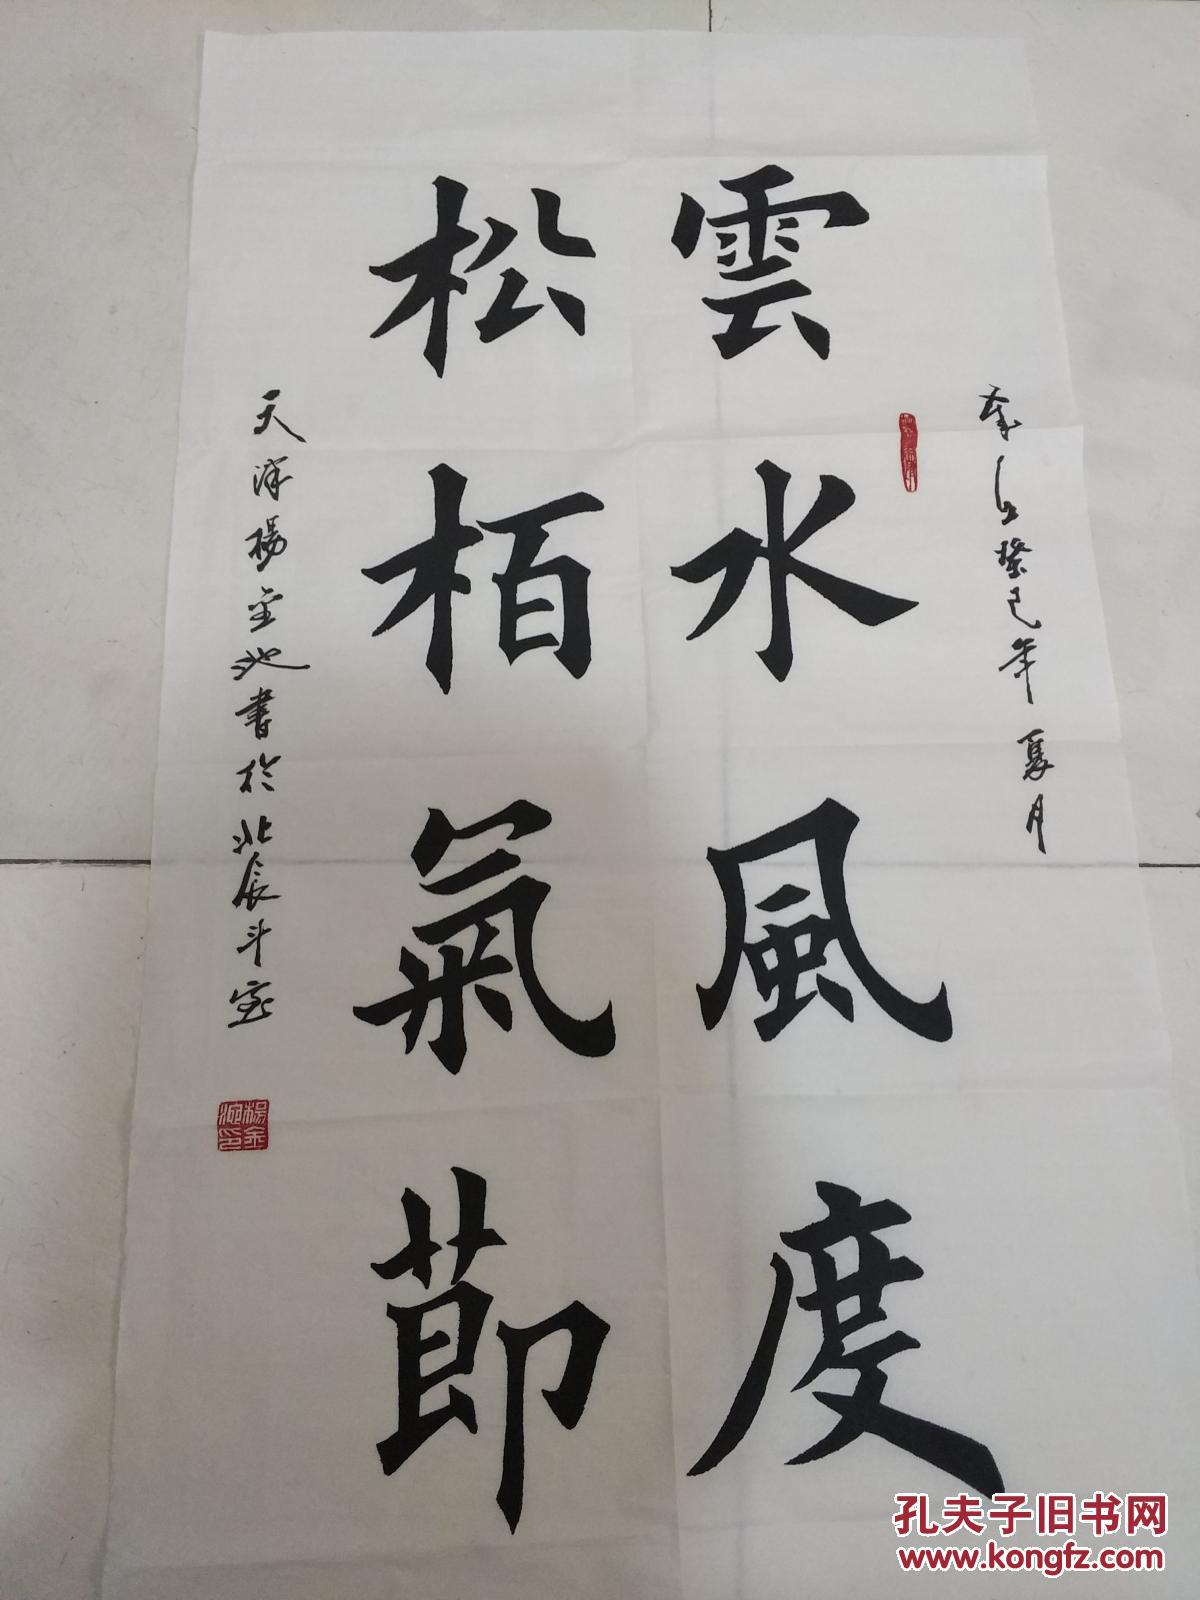 癸巳年夏月
雲水風度
松栢氣莭
天津楊金池書於北辰斗室
楊金池印
孔夫子旧书网
www.kongfz.com